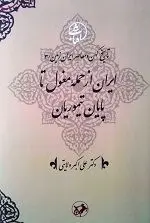 تاریخ کهن و معاصر ایران زمین
ایران از حمله مغول تا
پایان تیموریان
دکتر علی‌اکبر ولایتی